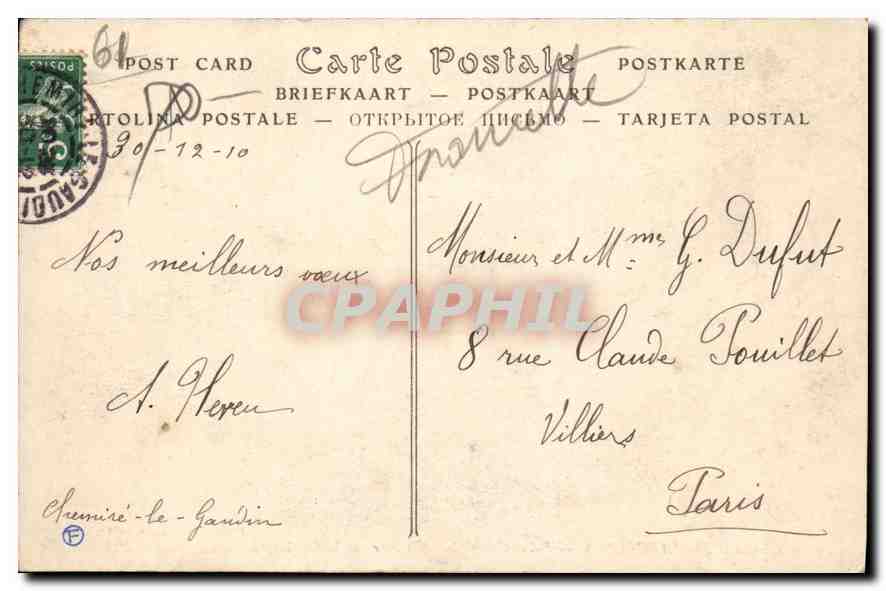 61
POST CARD Carte Postale POSTKARTE
BRIEFKAART — POSTKAART
RTOLINA POSTALE — ОТКРЫТОЕ ПИСЬМО — TARJETA POSTAL
POSTES
30-12-10
Nos meilleurs vœux
Chemiré-le-Gaudin
F
Monsieur et Mme G. Dufut
8 rue Claude Pouillet
Villiers
Paris
CPAPHIL